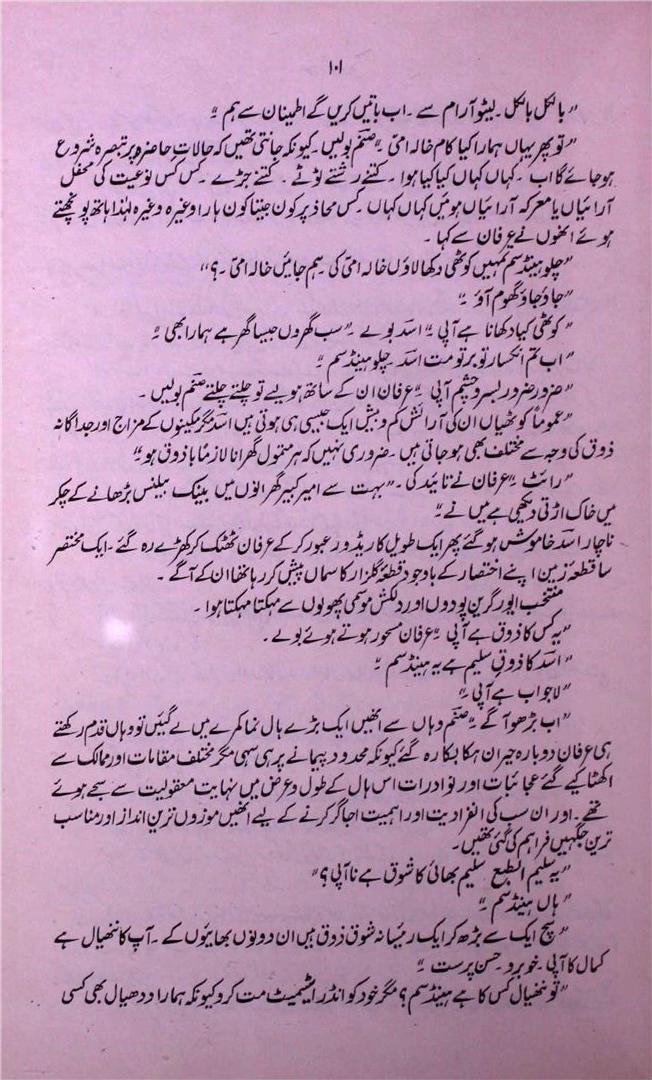 ۱۰۱
"بالکل بالکل۔ لیٹو آرام سے۔ اب باتیں کریں گے اطمینان سے ہم۔"
"تو پھر یہاں ہمارا کیا کام خالہ امّی۔" صنم بولیں۔ کیونکہ جانتی تھیں کہ حالاتِ حاضرہ پر تبصرہ شروع
ہو جائے گا اب۔ کہاں کہاں کیا کیا ہوا۔ کتنے رشتے ٹوٹے۔ کتنے جڑے۔ کس کس نوعیت کی محفل
آرائیاں یا معرکہ آرائیاں ہوئیں کہاں کہاں۔ کس محاذ پر کون جیتا کون ہارا وغیرہ وغیرہ لہٰذا ہاتھ پونچھتے
ہوئے انھوں نے عرفان سے کہا۔
"چلو ہینڈسم تمہیں کوٹھی دکھا لاؤں خالہ امّی کی۔ ہم جائیں خالہ امّی۔؟"
"جاؤ جاؤ گھوم آؤ۔"
"کوٹھی کیا دکھانا ہے آپی۔" اسد بولے۔ "سب گھروں جیسا گھر ہے ہمارا بھی۔"
"اب تم انکسار تو برتو مت اسد۔ چلو ہینڈسم۔"
"ضرور ضرور بسر و چشم آپی۔" عرفان ان کے ساتھ ہو لیے تو چلتے چلتے صنم بولیں۔
"عموماً کوٹھیاں ان کی آرائش کم و بیش ایک جیسی ہی ہوتی ہیں اسد مگر مکینوں کے مزاج اور جداگانہ
ذوق کی وجہ سے مختلف بھی ہو جاتی ہیں۔ ضروری نہیں کہ ہر متمول گھرانا لازماً باذوق ہو۔"
"رائٹ۔" عرفان نے تائید کی۔ "بہت سے امیر کبیر گھرانوں میں بینک بیلنس بڑھانے کے چکر
میں خاک اڑتی دیکھی ہے میں نے۔"
ناچار اسد خاموش ہو گئے پھر ایک طویل کاریڈور عبور کر کے عرفان ٹھٹک کر کھڑے رہ گئے۔ ایک مختصر
سا قطعۂ زمین اپنے اختصار کے باوجود قطعۂ گلزار کا سماں پیش کر رہا تھا ان کے آگے۔
منتخب ایور گرین پودوں اور دلکش موسمی پھولوں سے مہکتا مہکتا ہوا۔
"یہ کس کا ذوق ہے آپی۔" عرفان مسحور ہوتے ہوئے بولے۔
"اسد کا ذوقِ سلیم ہے یہ ہینڈسم۔"
"لاجواب ہے آپی۔"
"اب بڑھو آگے۔" صنم وہاں سے انھیں ایک بڑے ہال نما کمرے میں لے گئیں تو وہاں قدم رکھتے
ہی عرفان دوبارہ حیران ہکا بکا رہ گئے کیونکہ محدود پیمانے پر ہی سہی مگر مختلف مقامات اور ممالک سے
اکھٹا کیے گئے عجائبات اور نوادرات اس ہال کے طول و عرض میں نہایت معقولیت سے سجے ہوئے
تھے۔ اور ان سب کی انفرادیت اور اہمیت اجاگر کرنے کے لیے انھیں موزوں ترین انداز اور مناسب
ترین جگہیں فراہم کی گئی تھیں۔
"یہ سلیم الطبع سلیم بھائی کا شوق ہے نا آپی؟"
"ہاں ہینڈسم۔"
"سچ ایک سے بڑھ کر ایک رئیسانہ شوق ذوق ہیں ان دونوں بھائیوں کے۔ آپ کا ننھیال ہے
کمال کا آپی۔ خوبرو۔ حسن پرست۔"
"تو ننھیال کس کا ہے ہینڈسم؟ مگر خود کو انڈر ایسٹیمیٹ مت کرو کیونکہ ہمارا ددھیال بھی کسی